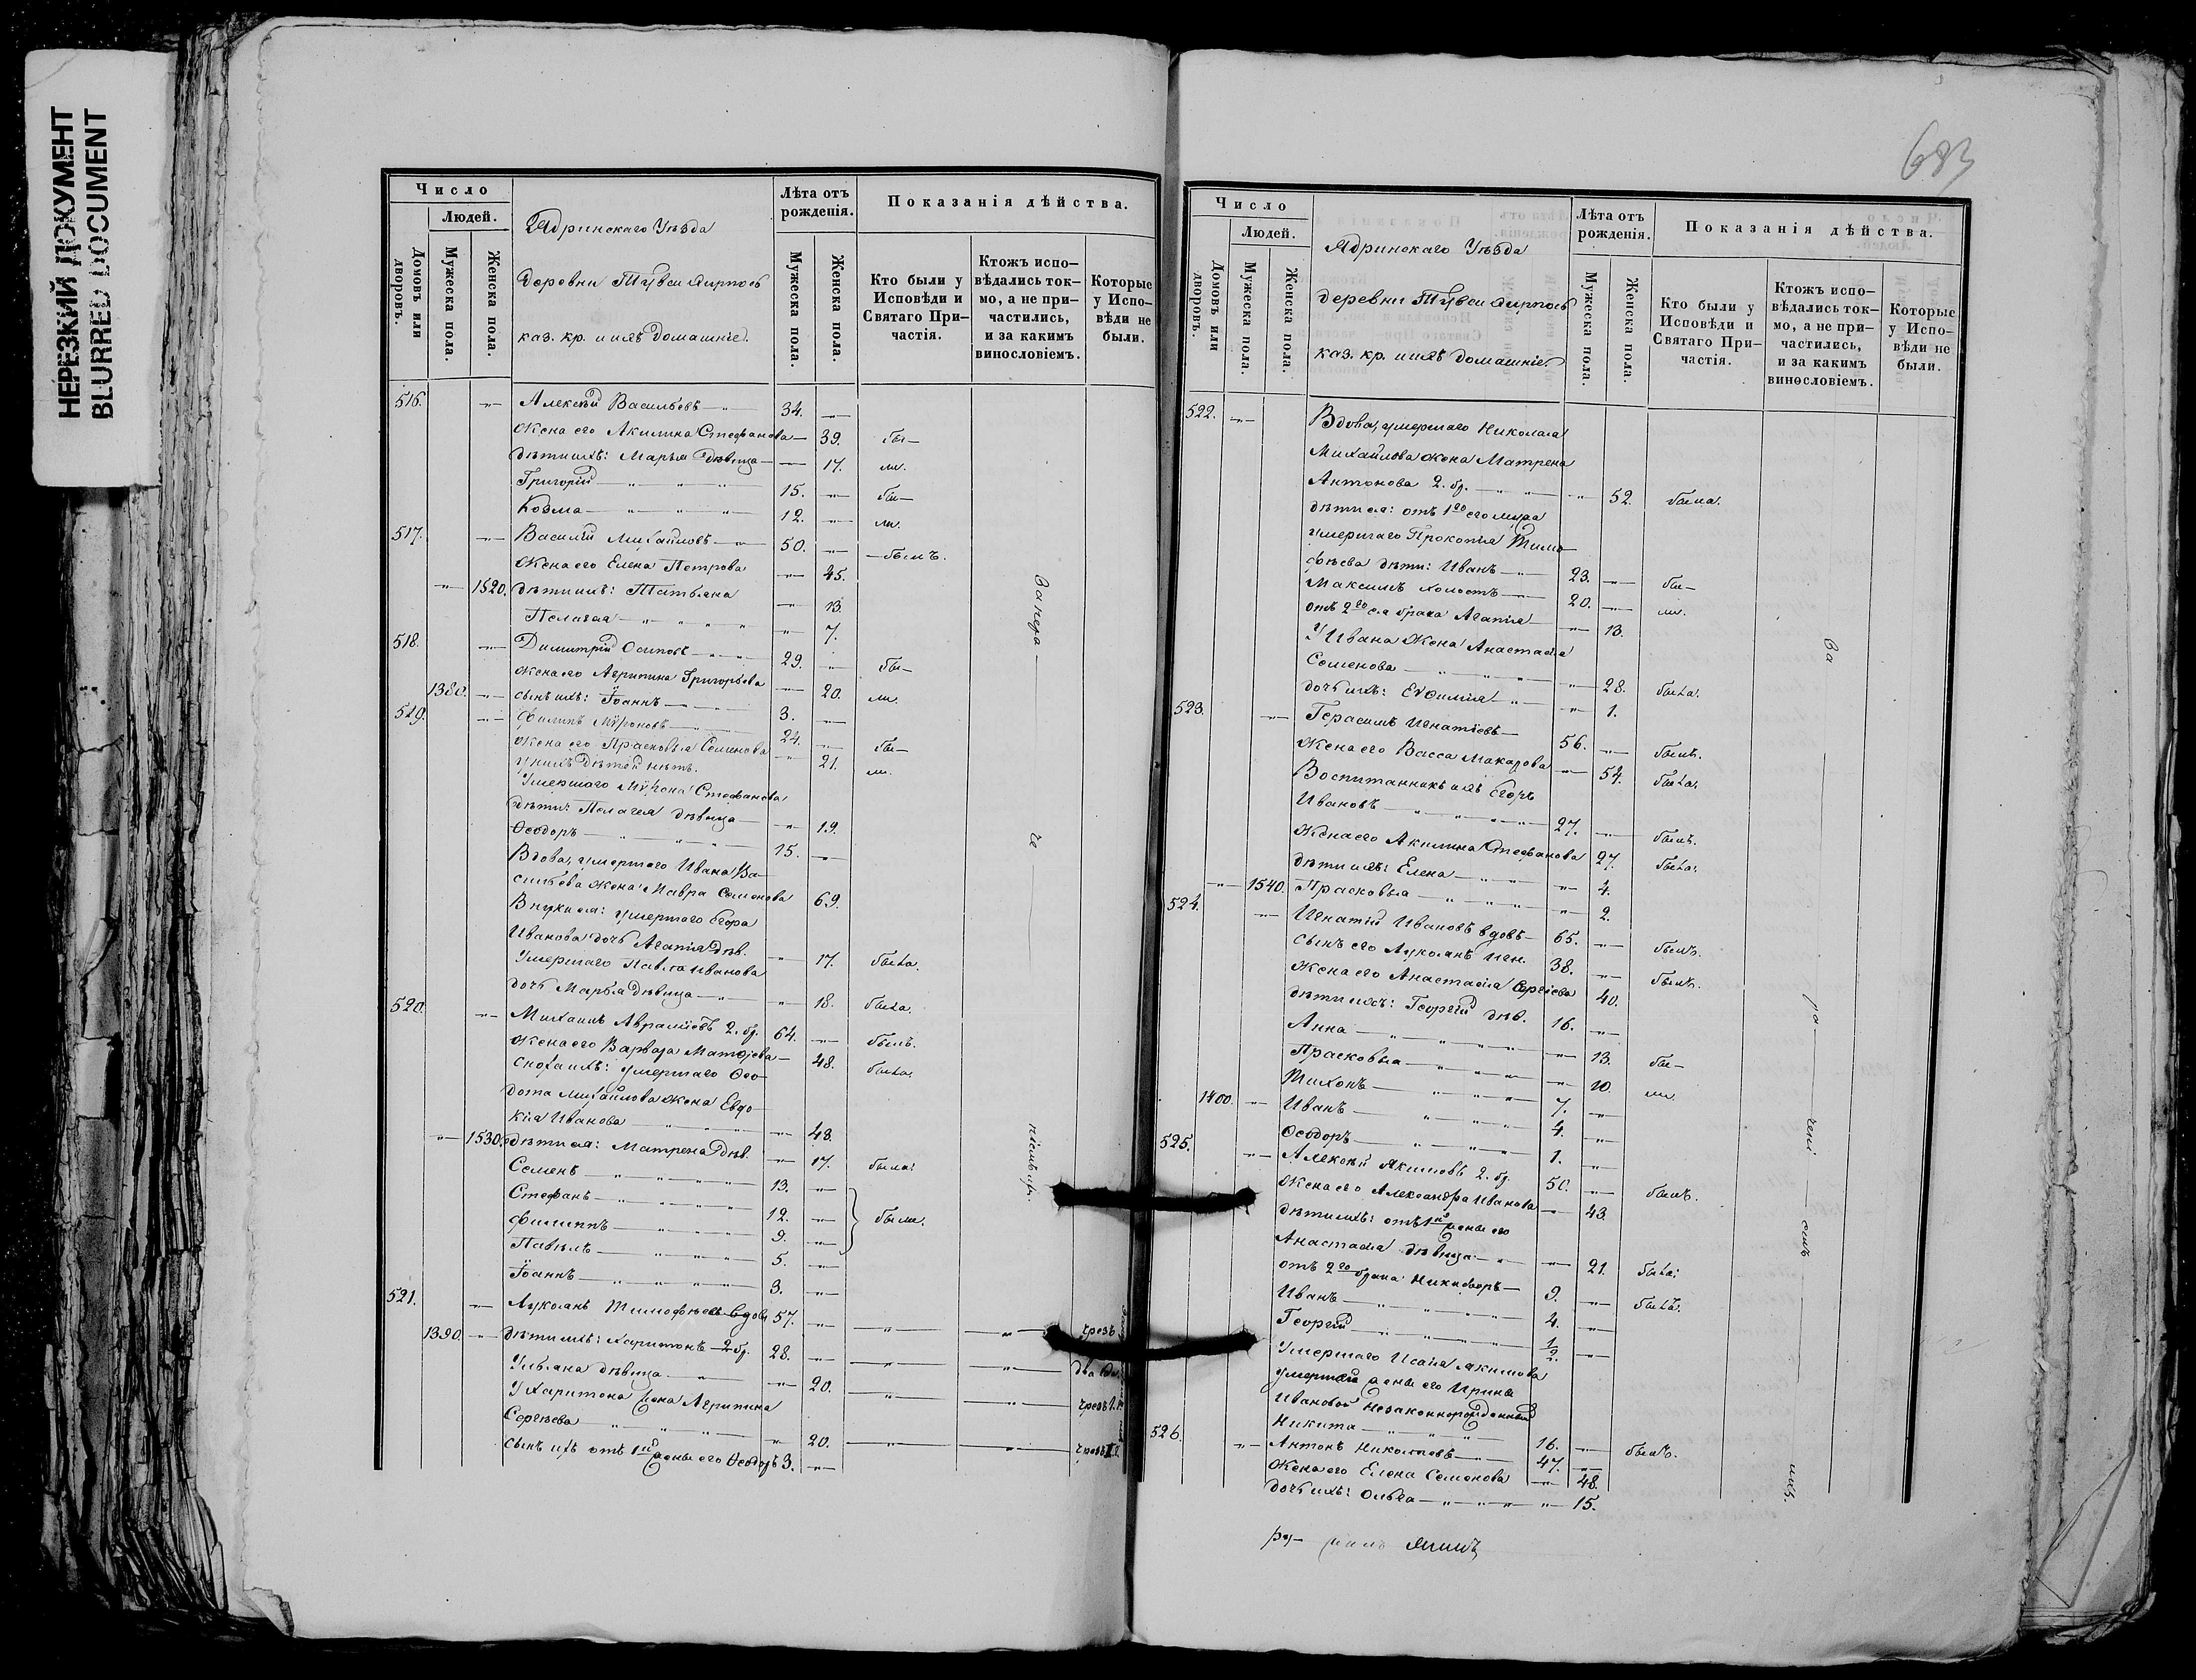 НЕРЕЗКИЙ ДОКУМЕНТ
BLURRED DOCUMENT
Число
Людей.
Домовъ или дворовъ.
Мужеска пола.
Женска пола.
Ядринскаго Уѣзда
деревни
каз. кр. и ихъ домашніе.
Лѣта отъ рожденія.
Мужеска пола.
Женска пола.
Показанія дѣйства.
Кто были у Исповѣди и Святаго Причастія.
Ктожъ исповѣдались токмо, а не причастились, и за какимъ винословіемъ.
Которые у Исповѣди не были.
516. Алексѣй Васильевъ 34.
Жена его Акилина Стефанова 39. бы-
дѣти ихъ: Марья дѣвица 17. ли.
Григорій 15. бы-
Козма 12. ли.
517. Василій Михайловъ 50. былъ.
Жена его Елена Петрова 45.
1520. дѣти ихъ: Татьяна 13.
Пелагея 7.
518. Димитрій Осиповъ 29. бы-
Жена его Агрипина Григорьева 20. ли.
1380. сынъ ихъ: Іоаннъ 3.
519. Филипъ Мѵроновъ 24. бы-
Жена его Прасковья Семенова 21. ли.
у нихъ дѣтей нѣтъ.
Умершаго Мѵрона Стефанова
дѣти: Пелагея дѣвица 19.
Ѳеодоръ 15.
Вдова, умершаго Ивана Ва-
сильева жена Мавра Семенова 69.
Внуки ея: умершаго Егора
Иванова дочь Агапія дѣв. 17. была.
Умершаго Павла Иванова
дочь Марья дѣвица 18. была.
520. Михаилъ Авраміевъ 2. бр. 64. былъ.
Жена его Варвара Матѳіева 48. была.
Сноха ихъ: умершаго Ѳео-
дота Михайлова жена Евдо-
кія Иванова 43.
1530. дѣти ея: Матрена дѣв. 17. была.
Семенъ 13.
Стефанъ 12. были.
Филиппъ 9.
Павелъ 5.
Іоаннъ 3.
521. Лукіанъ Тимофѣевъ вдовъ 57. чрезъ
1390. дѣти ихъ: Харитонъ 2 бр. 28. два
Ульяна дѣвица 20. чрезъ
У Харитона жена Агрипина
Сергѣева 20. чрезъ
сынъ ихъ отъ 1й жены его Ѳеодоръ 3.
683
Число
Людей.
Домовъ или дворовъ.
Мужеска пола.
Женска пола.
Ядринскаго Уѣзда
деревни
каз. кр. и ихъ домашніе.
Лѣта отъ рожденія.
Мужеска пола.
Женска пола.
Показанія дѣйства.
Кто были у Исповѣди и Святаго Причастія.
Ктожъ исповѣдались токмо, а не причастились, и за какимъ винословіемъ.
Которые у Исповѣди не были.
522. Вдова, умершаго Николая
Михайлова жена Матрена
Антонова 2. бр. 52. была.
дѣти ея: отъ 1го его мужа
умершаго Прокопія Тимо-
фѣева дѣти: Иванъ 23. бы-
Максимъ холостъ 20. ли.
отъ 2го ея брака Агапія 13.
У Ивана жена Анастасія
Семенова 28. была.
дочь ихъ: Евѳимія 1.
523. Герасимъ Игнатіевъ 56. былъ.
Жена его Васса Макарова 54. была.
Воспитанникъ ихъ Егоръ
Ивановъ 27. былъ.
Жена его Акилина Стефанова 27. была.
дѣти ихъ: Елена 4.
1540. Прасковья 2.
524. Игнатій Ивановъ вдовъ 65. былъ.
Сынъ его Лукіанъ Игн. 38. былъ.
Жена его Анастасія Сергіева 40.
дѣти ихъ: Георгій 16.
Анна 13. бы-
Прасковья 10. ли.
Тихонъ 7.
1400. Иванъ 4.
Ѳеодоръ 1.
525. Алексѣй Якимовъ 2. бр. 50. былъ.
Жена его Александра Иванова 43.
дѣти ихъ: отъ 1й жены его
Анастасія дѣвица 21. была.
отъ 2го брака Никифоръ 9. былъ.
Иванъ 4.
Георгій 1/2.
Умершаго Исаія Якимова
умершей жены его Ирины
Ивановой незаконнорожденный
Никита 16. былъ.
526. Антонъ Николаевъ 47.
Жена его Елена Семенова 48.
дочь ихъ: Ольга 15.